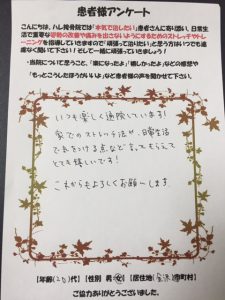 患者様アンケート
こんにちは、ハレ接骨院では「本気で治したい」患者さんに寄り添い、日常生
活で重要な姿勢の改善や痛みを出さないようにするためのストレッチやトレ
ーニングを指導していきますので「頑張って治りたい」と思う方はいつでも遠
慮なく聞いて下さい！そして一緒に頑張っていきましょう！
・当院について思うこと、「楽になったよ」「嬉しかったよ」などの感想や
「もっとこうしたほうがいいよ」など患者様の声を聞かせて下さい。
いつも楽しく通院しています！
家でのストレッチ法や、日常生活
で気をつける点など言ってもらえて
とても嬉しいです！
これからもよろしくお願いします。
【年齢(20)代】【性別 男・女】【居住地(金沢)市町村】
ご協力ありがとうございました。